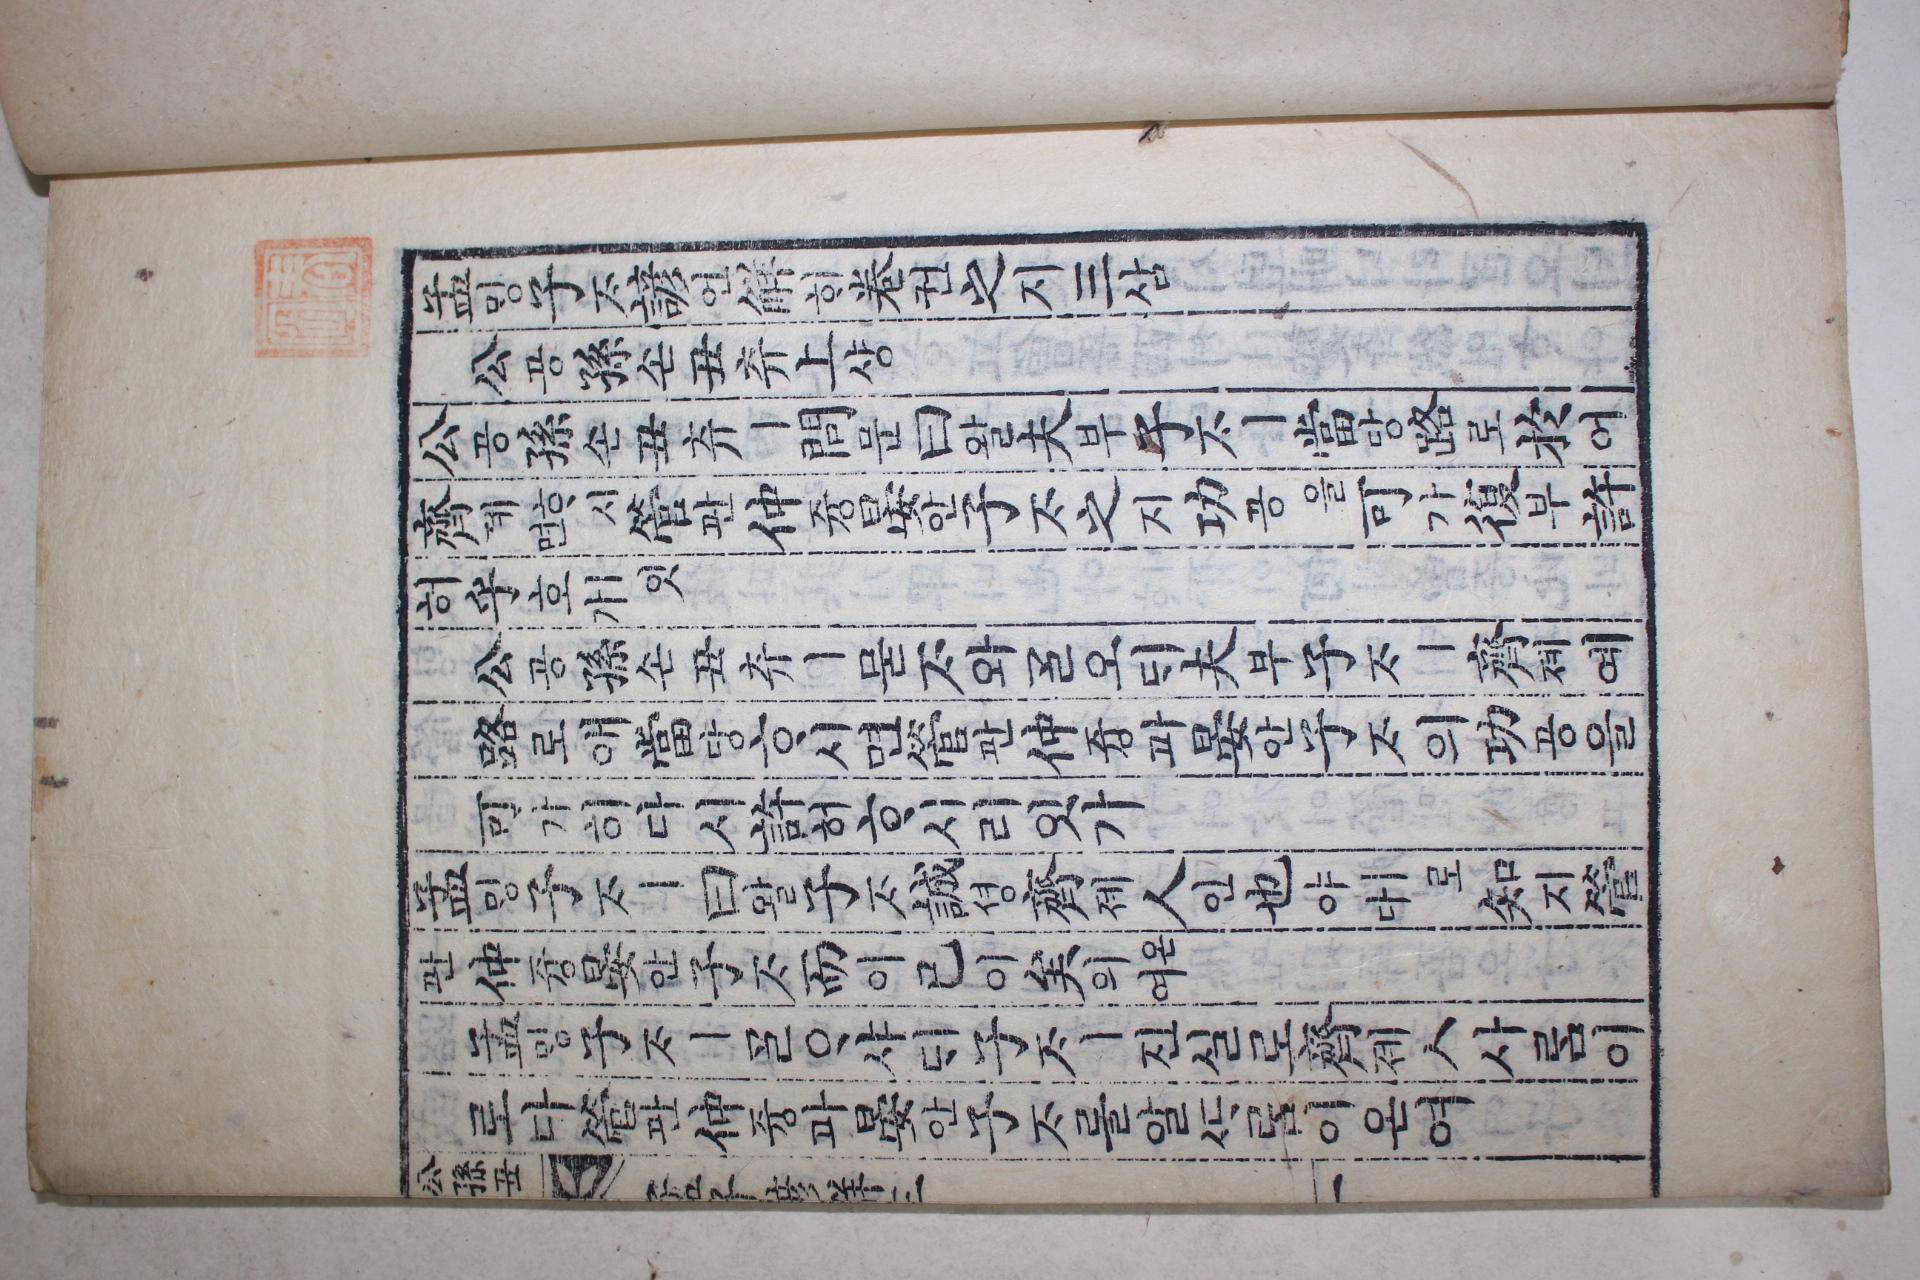 孟밍子ᄌᆞ諺언解ᄒᆡ卷권之지三삼
公공孫손丑츄上샹
公공孫손丑츄ㅣ問문曰왈夫부子ᄌᆞㅣ當당路로於어
齊졔ᄒᆞ시면管관仲즁晏안子ᄌᆞ之지功공을可가復부許
허乎호ㅣ잇가
公공孫손丑츄ㅣ묻ᄌᆞ와ᄀᆞᆯ오ᄃᆡ夫부子ᄌᆞㅣ齊졔예
路로애當당ᄒᆞ시면管관仲즁과晏안子ᄌᆞ의功공을
可가히다시許허ᄒᆞ시리잇가
孟밍子ᄌᆞㅣ曰왈子ᄌᆞ誠셩齊졔人인也야ㅣ로다知지管
관仲즁晏안子ᄌᆞ而이已이矣의온여
孟밍子ᄌᆞㅣᄀᆞᆯᄋᆞ샤ᄃᆡ子ᄌᆞㅣ진실로齊졔ㅅ사ᄅᆞᆷ이
로다管관仲즁과晏안子ᄌᆞ를알ᄯᆞᄅᆞᆷ이온여
公孫丑 孟子諺解三 一